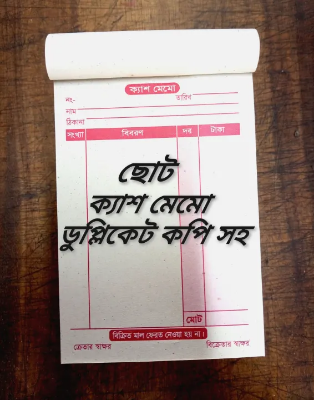 ক্যাশ মেমো
নং-
তারিখ
নাম
ঠিকানা
সংখ্যা বিবরণ দর টাকা
ছোট
ক্যাশ মেমো
ডুপ্লিকেট কপি সহ
মোট
বিক্রিত মাল ফেরত নেওয়া হয় না।
ক্রেতার স্বাক্ষর বিক্রেতার স্বাক্ষর